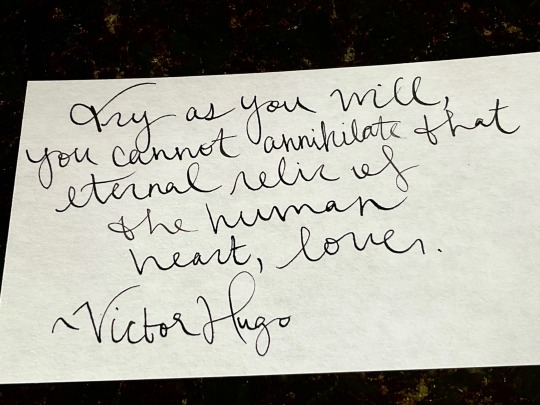 Try as you will,
you cannot annihilate that
eternal relic of
the human
heart, love.
~Victor Hugo